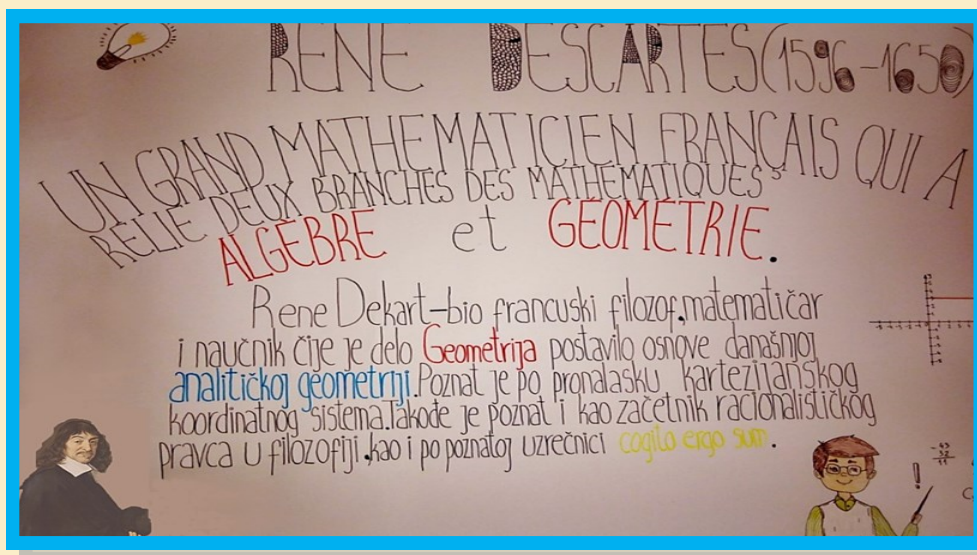 RENE DESCARTES (1596-1650)
UN GRAND MATHEMATICIEN FRANÇAIS QUI A
RELIE DEUX BRANCHES DES MATHEMATIQUES:
ALGEBRE et GEOMETRIE.
Rene Dekart-bio francuski filozof, matematičar
i naučnik čije je delo Geometrija postavilo osnove današnjoj
analitičkoj geometriji. Poznat je po pronalasku kartezijanskog
koordinatnog sistema. Takođe je poznat i kao začetnik racionalističkog
pravca u filozofiji, kao i po poznatoj uzrečnici cogito ergo sum.